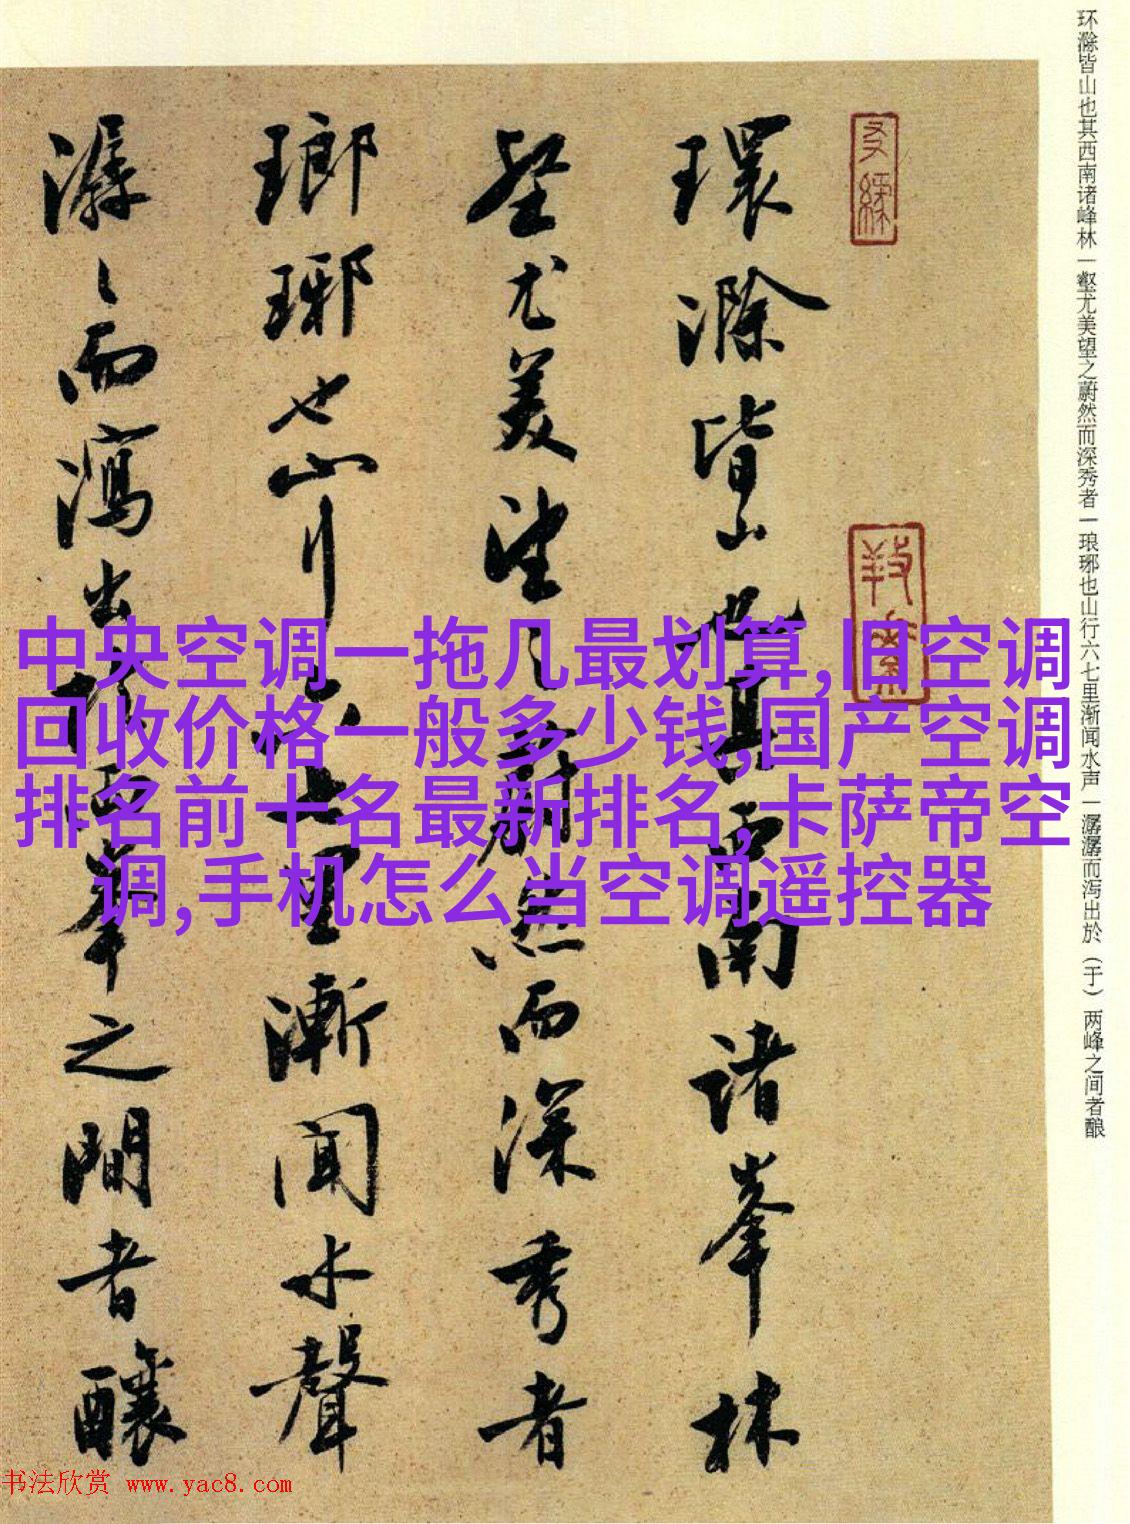 環滁皆山也其西南諸峯林
壑尤美望之蔚然而深秀者
瑯琊也山行六七里漸聞水聲
潺〻而瀉出於兩峯之間者釀
环滁皆山也其西南诸峰林一壑尤美望之蔚然而深秀者一琅琊也山行六七里渐闻水声一潺潺而泻出於（于）两峰之间者酿
中央空调一拖几最划算,旧空调
回收价格一般多少钱,国产空调
排名前十名最新排名,卡萨帝空
调,手机怎么当空调遥控器
书法欣赏 www.yac8.com